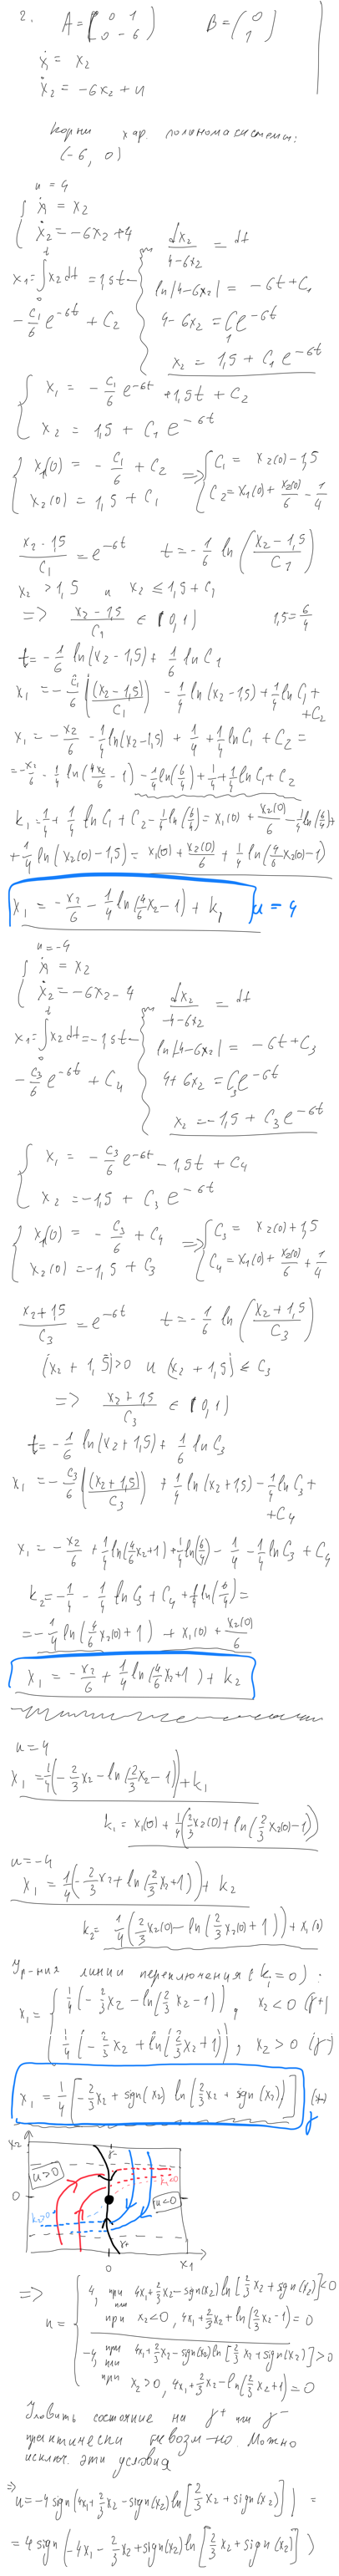 2. A = ( 0 1 0 -6 ) B = ( 0 1 )
ẋ₁ = x₂
ẋ₂ = -6x₂ + u
корни хар. полинома системы:
(-6, 0)
u = 4
{ ẋ₁ = x₂
ẋ₂ = -6x₂ + 4
dx₂/(4-6x₂) = dt
x₁ = ∫₀ᵗ x₂ dt = 1,5t -
- C₁/6 e^(-6t) + C₂
ln|4-6x₂| = -6t + C₁
4-6x₂ = C₁e^(-6t)
x₂ = 1,5 + C₁e^(-6t)
{ x₁ = -C₁/6 e^(-6t) + 1,5t + C₂
x₂ = 1,5 + C₁e^(-6t)
{ x₁(0) = -C₁/6 + C₂
x₂(0) = 1,5 + C₁
=> { C₁ = x₂(0) - 1,5
C₂ = x₁(0) + x₂(0)/6 - 1/4
(x₂ - 1,5)/C₁ = e^(-6t) t = -1/6 ln((x₂ - 1,5)/C₁)
x₂ > 1,5 и x₂ ≤ 1,5 + C₁
=> (x₂ - 1,5)/C₁ ∈ (0,1) 1,5 = 6/4
t = -1/6 ln(x₂ - 1,5) + 1/6 ln C₁
x₁ = -C₁/6 ((x₂ - 1,5)/C₁) - 1/4 ln(x₂ - 1,5) + 1/4 ln C₁ +
+ C₂
x₁ = -x₂/6 - 1/4 ln(x₂ - 1,5) + 1/4 + 1/4 ln C₁ + C₂ =
= -x₂/6 - 1/4 ln(4x₂/6 - 1) - 1/4 ln(6/4) + 1/4 + 1/4 ln C₁ + C₂
k₁ = 1/4 + 1/4 ln C₁ + C₂ - 1/4 ln(6/4) = x₁(0) + x₂(0)/6 - 1/4 ln(6/4) +
+ 1/4 ln(x₂(0) - 1,5) = x₁(0) + x₂(0)/6 + 1/4 ln(4/6 x₂(0) - 1)
x₁ = -x₂/6 - 1/4 ln(4/6 x₂ - 1) + k₁ u = 4
u = -4
{ ẋ₁ = x₂
ẋ₂ = -6x₂ - 4
dx₂/(-4-6x₂) = dt
x₁ = ∫₀ᵗ x₂ dt = -1,5t -
- C₃/6 e^(-6t) + C₄
ln|-4-6x₂| = -6t + C₃
4+6x₂ = C₃e^(-6t)
x₂ = -1,5 + C₃e^(-6t)
{ x₁ = -C₃/6 e^(-6t) - 1,5t + C₄
x₂ = -1,5 + C₃e^(-6t)
{ x₁(0) = -C₃/6 + C₄
x₂(0) = -1,5 + C₃
=> { C₃ = x₂(0) + 1,5
C₄ = x₁(0) + x₂(0)/6 + 1/4
(x₂ + 1,5)/C₃ = e^(-6t) t = -1/6 ln((x₂ + 1,5)/C₃)
(x₂ + 1,5) > 0 и (x₂ + 1,5) ≤ C₃
=> (x₂ + 1,5)/C₃ ∈ (0,1)
t = -1/6 ln(x₂ + 1,5) + 1/6 ln C₃
x₁ = -C₃/6 ((x₂ + 1,5)/C₃) + 1/4 ln(x₂ + 1,5) - 1/4 ln C₃ +
+ C₄
x₁ = -x₂/6 + 1/4 ln(4/6 x₂ + 1) + 1/4 ln(6/4) - 1/4 - 1/4 ln C₃ + C₄
k₂ = -1/4 - 1/4 ln C₃ + C₄ + 1/4 ln(6/4) =
= -1/4 ln(4/6 x₂(0) + 1) + x₁(0) + x₂(0)/6
x₁ = -x₂/6 + 1/4 ln(4/6 x₂ + 1) + k₂
u = 4
x₁ = 1/4 (-2/3 x₂ - ln(2/3 x₂ - 1)) + k₁
k₁ = x₁(0) + 1/4 (2/3 x₂(0) + ln(2/3 x₂(0) - 1))
u = -4
x₁ = 1/4 (-2/3 x₂ + ln(2/3 x₂ + 1)) + k₂
k₂ = 1/4 (2/3 x₂(0) - ln(2/3 x₂(0) + 1)) + x₁(0)
Ур-ния линии переключения (kᵢ = 0):
x₁ = { 1/4 (-2/3 x₂ - ln(2/3 x₂ - 1)), x₂ < 0 (γ+)
1/4 (-2/3 x₂ + ln(2/3 x₂ + 1)), x₂ > 0 (γ-)
x₁ = 1/4 [-2/3 x₂ + sign(x₂) ln(2/3 x₂ + sign(x₂))] (*)
γ
x₂
γ-
u>0
0
u<0
γ+
0
x₁
=> u = { 4, при 4x₁ + 2/3 x₂ - sign(x₂) ln[2/3 x₂ + sign(x₂)] < 0
или
при x₂ < 0, 4x₁ + 2/3 x₂ + ln(2/3 x₂ - 1) = 0
-4, при 4x₁ + 2/3 x₂ - sign(x₂) ln[2/3 x₂ + sign(x₂)] > 0
или
при x₂ > 0, 4x₁ + 2/3 x₂ - ln(2/3 x₂ + 1) = 0
Уловить состояние на γ+ или γ-
практически невозм-но. Можно
исключ. эти условия
=> u = -4 sign(4x₁ + 2/3 x₂ - sign(x₂) ln[2/3 x₂ + sign(x₂)]) =
= 4 sign(-4x₁ - 2/3 x₂ + sign(x₂) ln[2/3 x₂ + sign(x₂)])